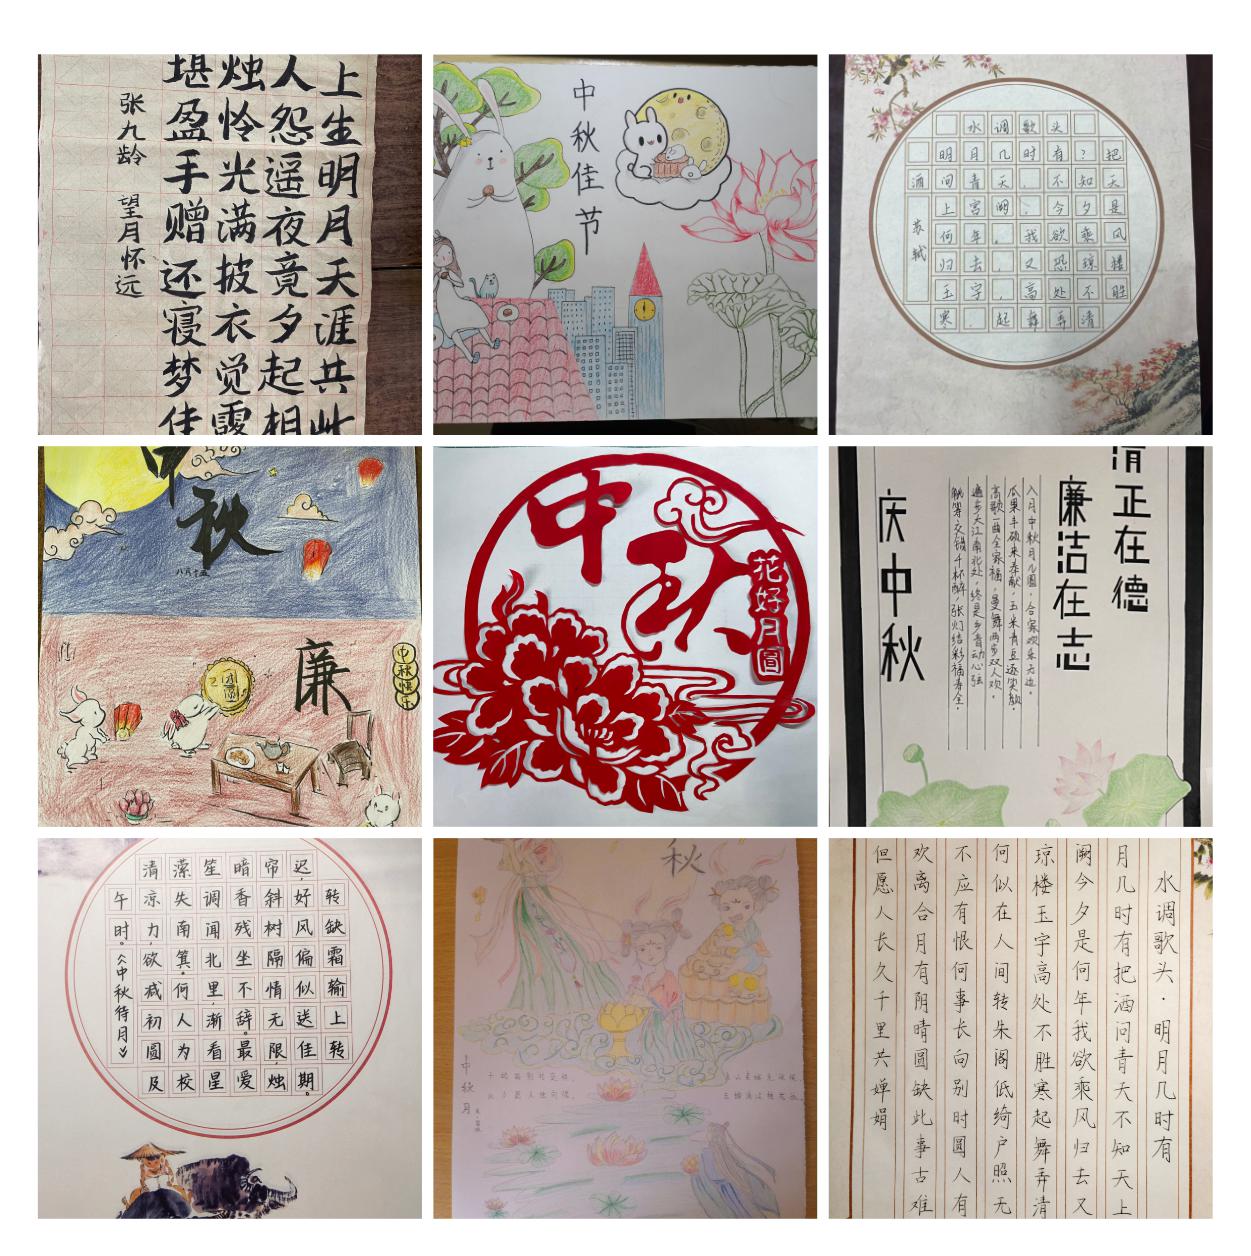 上生明月天涯共此
人怨遥夜竟夕起相
烛怜光满披衣觉露
堪盈手赠还寝梦佳
张九龄 望月怀远
中秋佳节
水调歌头
明月几时有?把
酒问青天,不知天
上宫阙,今夕是
何年。我欲乘风
归去,又恐琼楼
玉宇,高处不胜
寒,起舞弄清
苏轼
中秋
八月十五
廉
中秋
花好月圓
清正在德
廉洁在志
八月中秋月儿圆,合家欢乐无边。
瓜果丰硕来奉献,玉米青豆逐笑颜。
高歌一曲全家福,曼舞两步双人欢。
遍步大江南北处,终是乡音动心弦。
觥筹交错千杯醉,张灯结彩福寿全。
庆中秋
转缺霜输上转
迟,好风偏似送佳期。
帘斜树隔情无限,烛
暗香残坐不辞。最爱
笙调闻北里,渐看星
藻失南箕。何人为校
清凉力,欲减初圆及
午时。《中秋待月》
秋
中秋月
水调歌头·明月几时有
月几时有把酒问青天不知天上
阙今夕是何年我欲乘风归去又
琼楼玉宇高处不胜寒起舞弄清
何似在人间转朱阁低绮户照无
不应有恨何事长向别时圆人有
欢离合月有阴晴圆缺此事古难
但愿人长久千里共婵娟